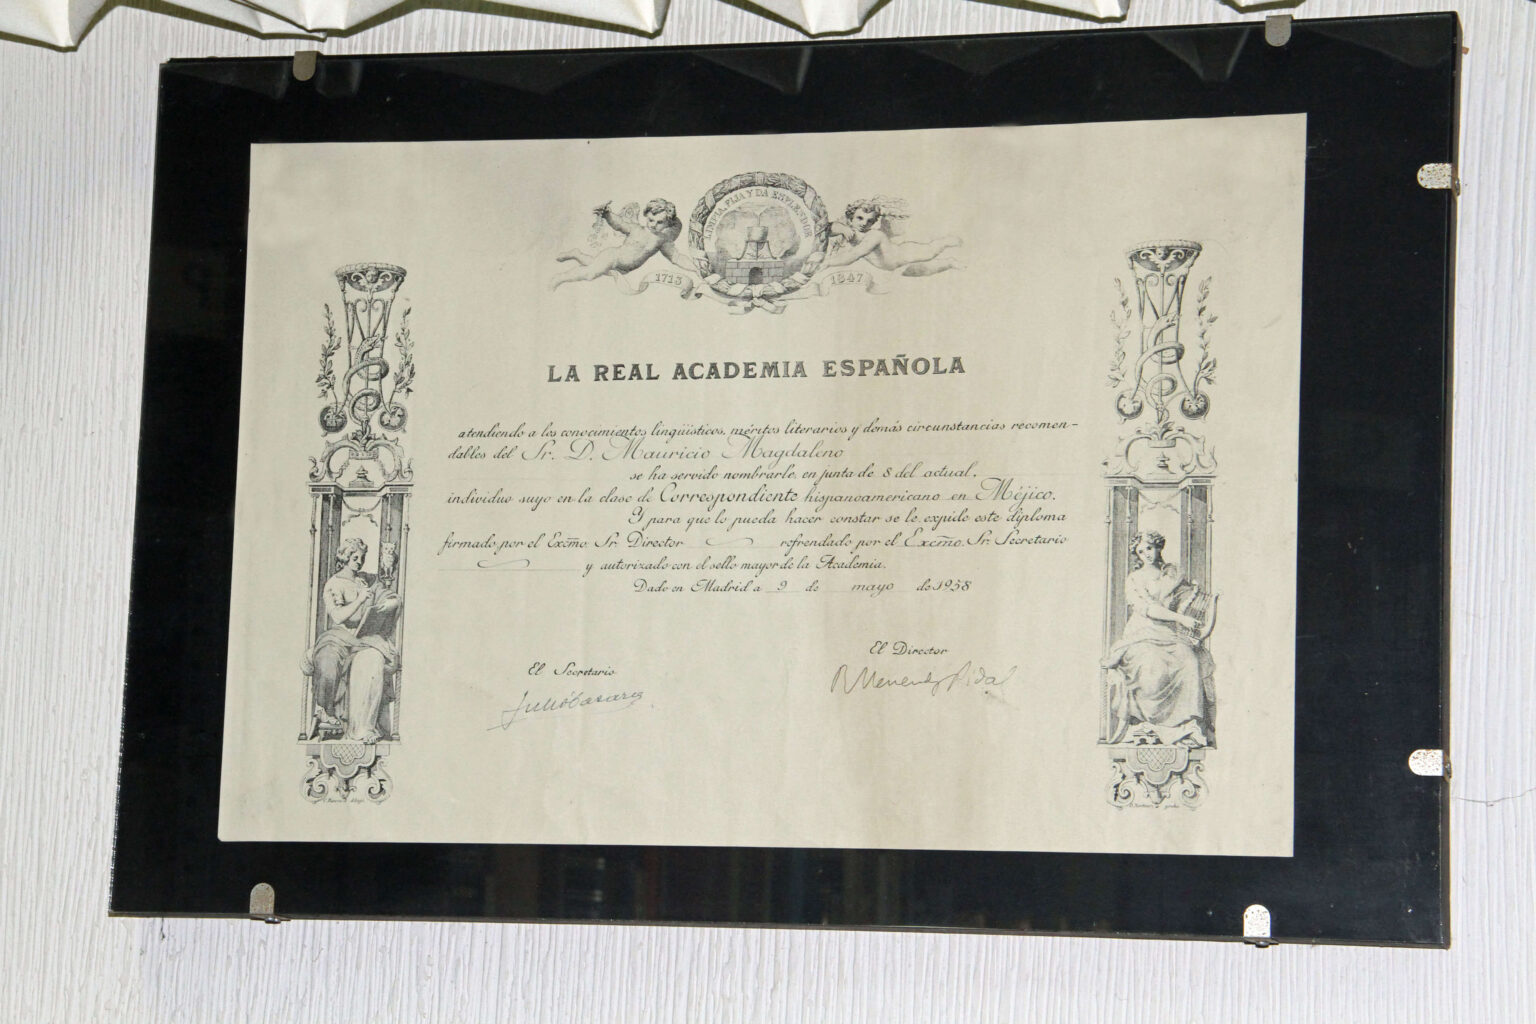 LIMPIA, FIJA Y DA ESPLENDOR
1713 1847
LA REAL ACADEMIA ESPAÑOLA
atendiendo a los conocimientos lingüísticos, méritos literarios y demás circunstancias recomen-
dables del Sr. D. Mauricio Magdaleno
se ha servido nombrarle, en junta de 8 del actual,
individuo suyo en la clase de Correspondiente hispanoamericano en Méjico.
Y para que lo pueda hacer constar se le expide este diploma
firmado por el Excmo. Sr. Director refrendado por el Excmo. Sr. Secretario
y autorizado con el sello mayor de la Academia.
Dado en Madrid a 9 de mayo de 1958
El Secretario
Julio Casares
El Director
R Menendez Pidal